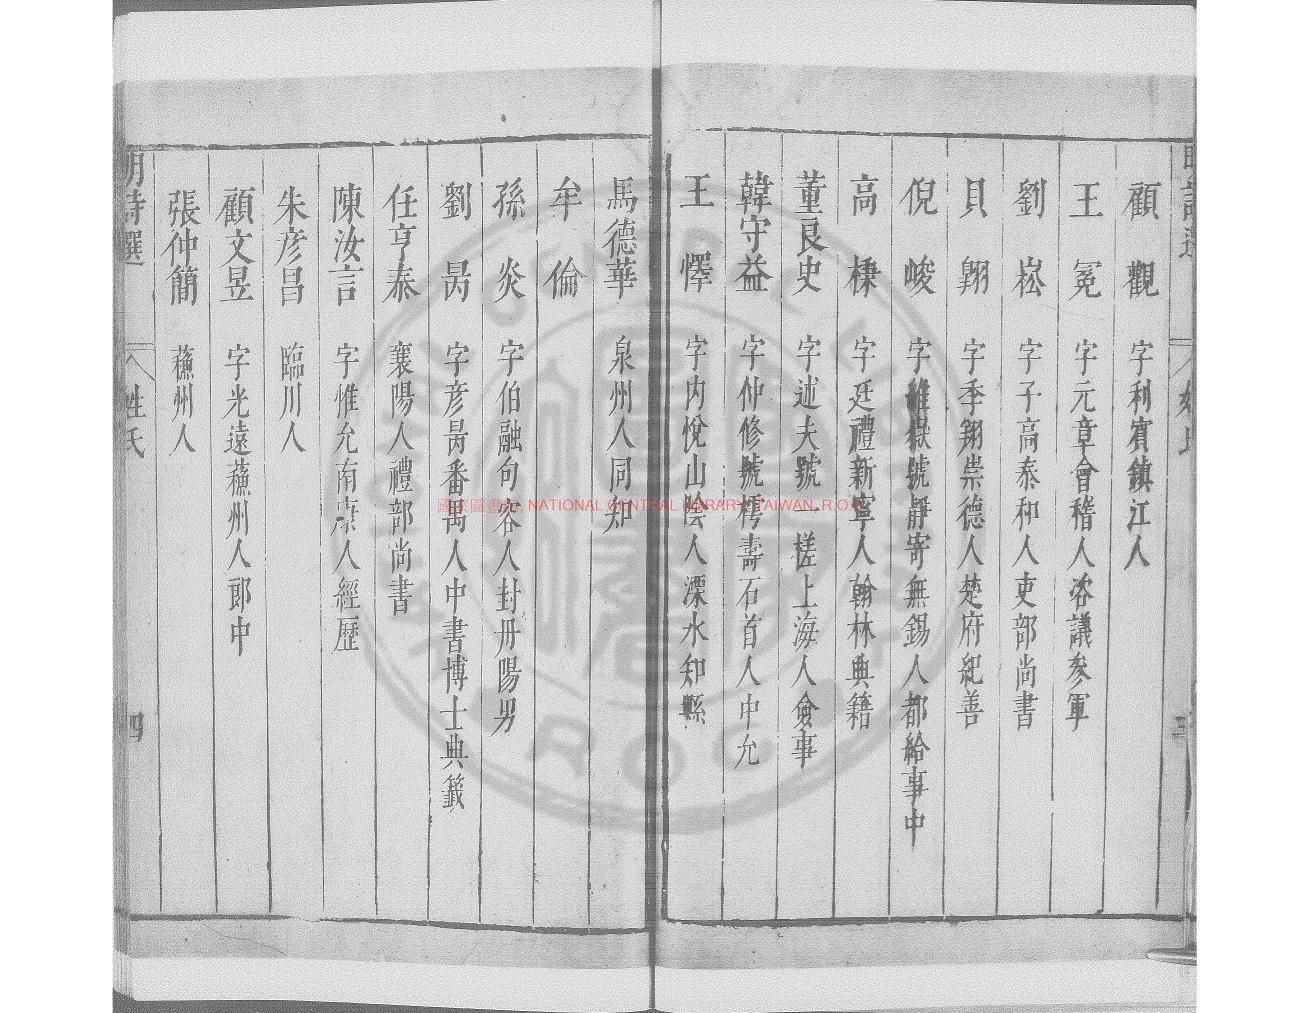 顧觀 字利賓鎮江人
王冕 字元章會稽人咨議參軍
劉崧 字子高泰和人吏部尚書
貝翱 字季翔崇德人楚府紀善
倪峻 字維嶽號靜寄無錫人都給事中
高棅 字廷禮新寧人翰林典籍
董良史 字述夫號一槎上海人僉事
韓守益 字仲修號樗壽石首人中允
王懌 字內悅山陰人溧水知縣
馬德華 泉州人同知
牟倫
孫炎 字伯融句容人封丹陽男
劉昺 字彥昺番禺人中書博士典籤
任亨泰 襄陽人禮部尚書
陳汝言 字惟允南康人經歷
朱彥昌 臨川人
顧文昱 字光遠蘓州人郎中
張仲簡 蘓州人
明詩選 姓氏 四
國家圖書館, NATIONAL CENTRAL LIBRARY, TAIWAN, R.O.C